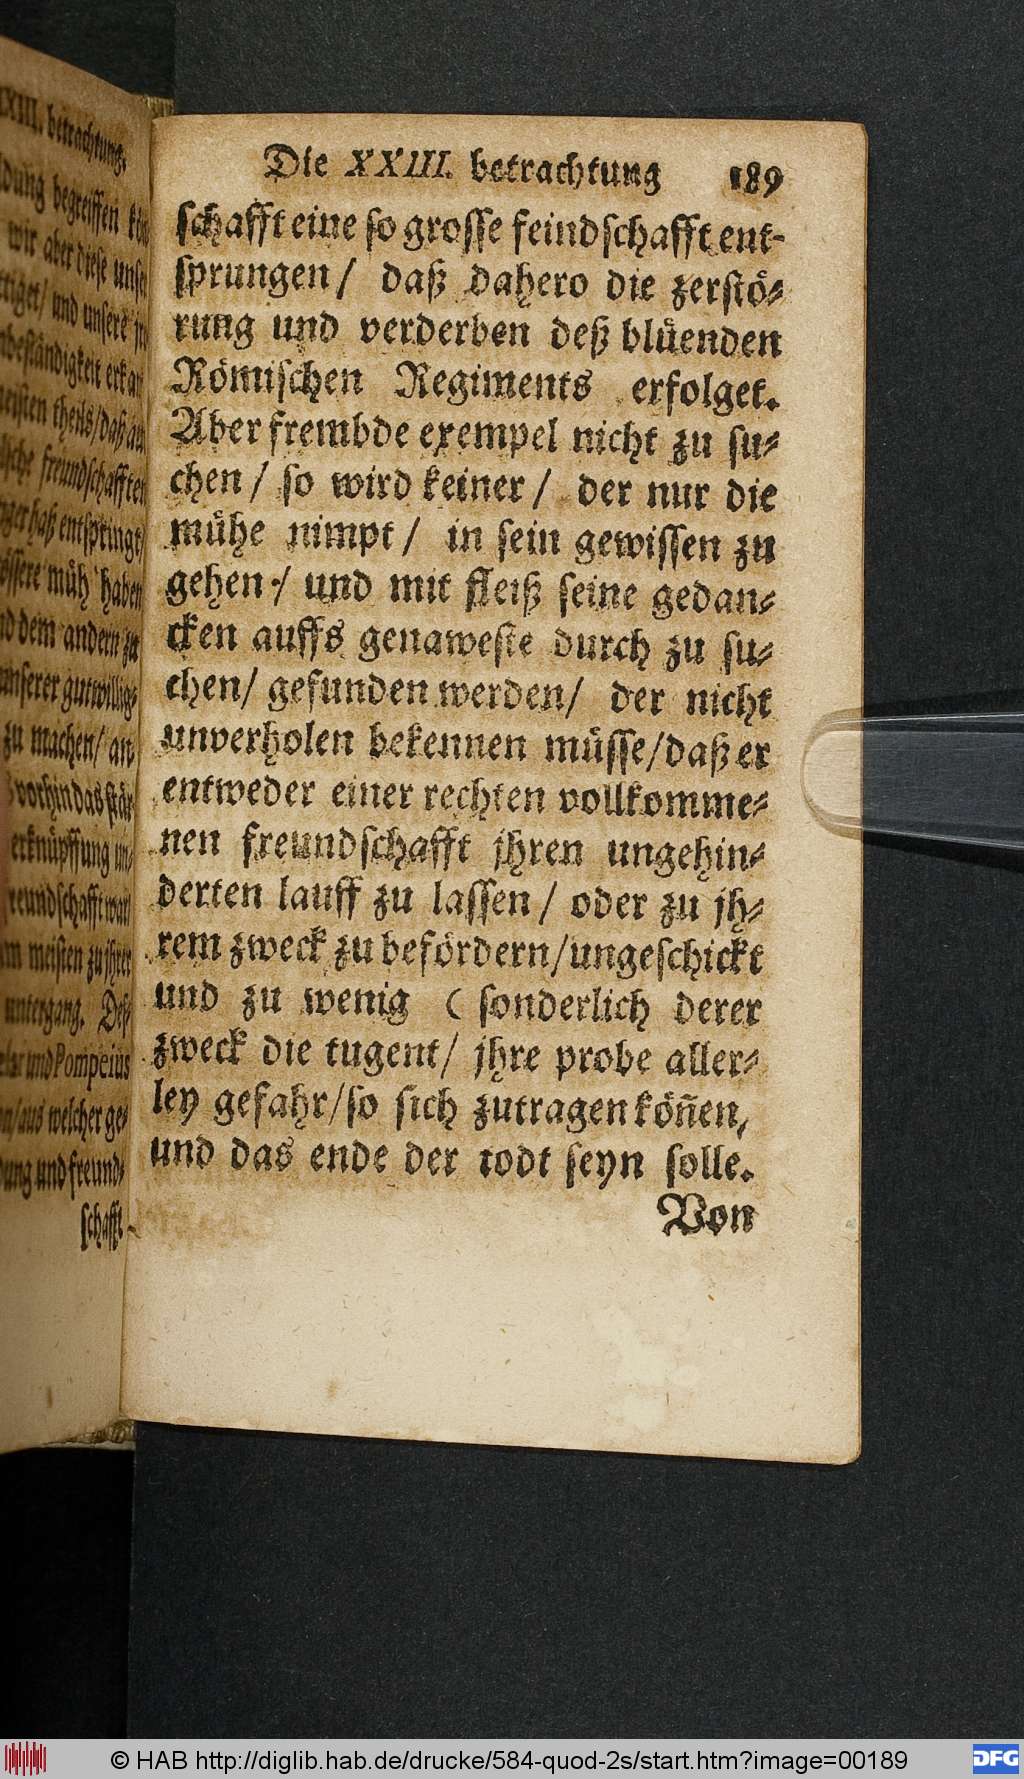 XXIII. betrachtung.
dung begreiffen
wir aber diese
und unsere
theils/daß
freundschafften
haß entspringt/
müh haben
dem andern zu
unserer gutwillig-
zu machen/ an
vorhin das
erknüpffung un-
reundschafft war/
am meisten zu jhrer
untergang. Des
und Pompeius
aus welcher ge-
dung und freund-
schafft
Die XXIII. betrachtung 189
schafft eine so grosse feindschafft ent-
sprungen/ daß dahero die zerstö-
rung und verderben deß blüenden
Römischen Regiments erfolget.
Aber frembde exempel nicht zu su-
chen/ so wird keiner/ der nur die
mühe nimpt/ in sein gewissen zu
gehen/ und mit fleiß seine gedan-
cken auffs genaweste durch zu su-
chen/ gefunden werden/ der nicht
unverholen bekennen müsse/daß er
entweder einer rechten vollkomme-
nen freundschafft jhren ungehin-
derten lauff zu lassen/ oder zu jh-
rem zweck zu befördern/ungeschickt
und zu wenig ( sonderlich derer
zweck die tugent/ jhre probe aller-
ley gefahr/so sich zutragen köñen,
und das ende der todt seyn solle.
Von
© HAB http://diglib.hab.de/drucke/584-quod-2s/start.htm?image=00189
DFG